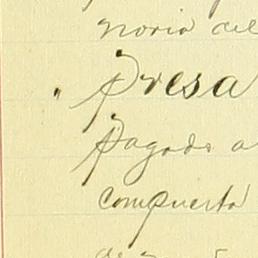 noria del
" presa
pagado a
compuerta